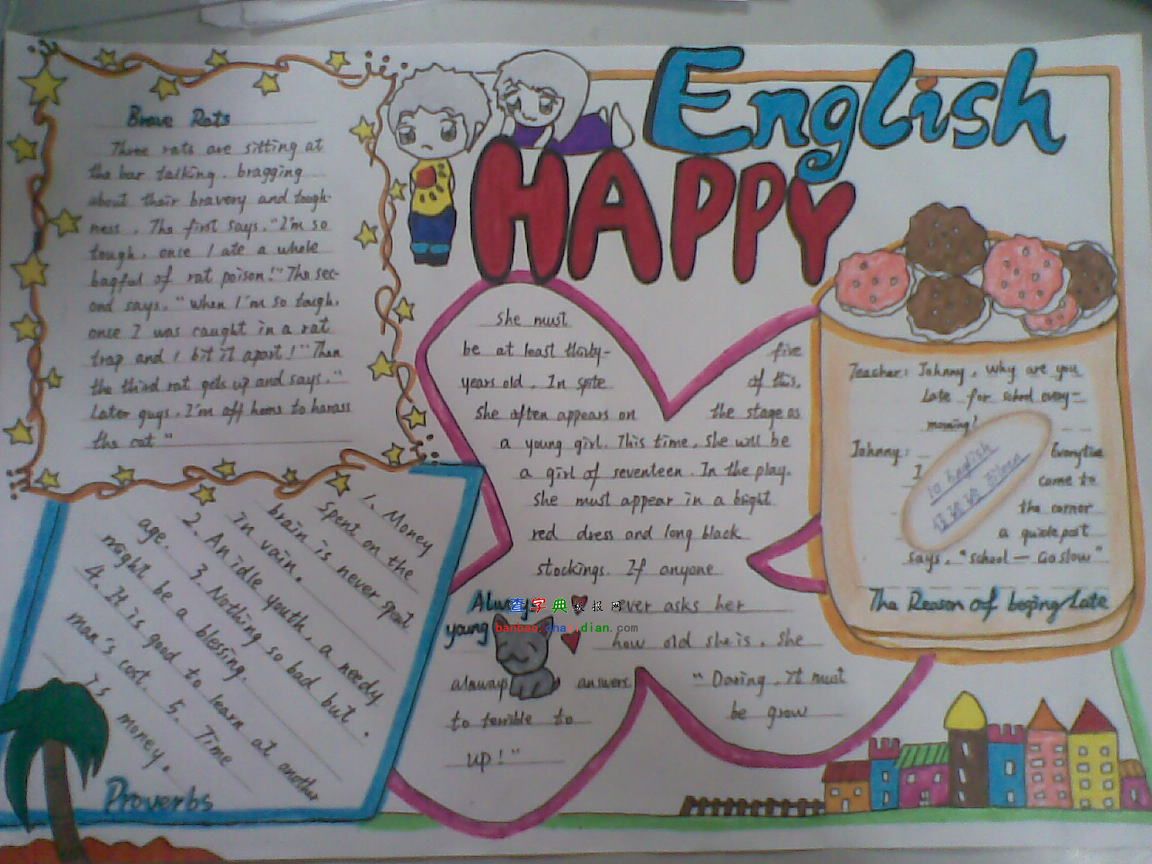 English
HAPPY
Brave Rats
Three rats are sitting at
the bar talking, bragging
about their bravery and tough-
ness. The first says, "I'm so
tough, once I ate a whole
bagful of rat poison!" The sec-
ond says, "When I'm so tough,
once I was caught in a rat
trap and I bit it apart!" Then
the third rat gets up and says, "
Later guys, I'm off home to harass
the cat"
1. Money
Spent on the
brain is never spent
in vain.
2. An idle youth, a needy
age. 3. Nothing so bad but
might be a blessing.
4. It is good to learn at another
man's cost. 5. Time
is money.
Proverbs
She must
be at least thirty- five
years old. In spite of this,
she often appears on the stage as
a young girl. This time, she will be
a girl of seventeen. In the play,
she must appear in a bright
red dress and long black
stockings. If anyone
ever asks her
how old she is, she
always answers, "Daring, It must
to terrible to be grow
up!"
Always
young
查字典 报网
dian.com
Teacher: Johnny, why are you
Late for school every-
morning?
Johnny: Everytime
I come to
the corner
a guidepost
says, "school — Go slow"
The Reason of beging Late